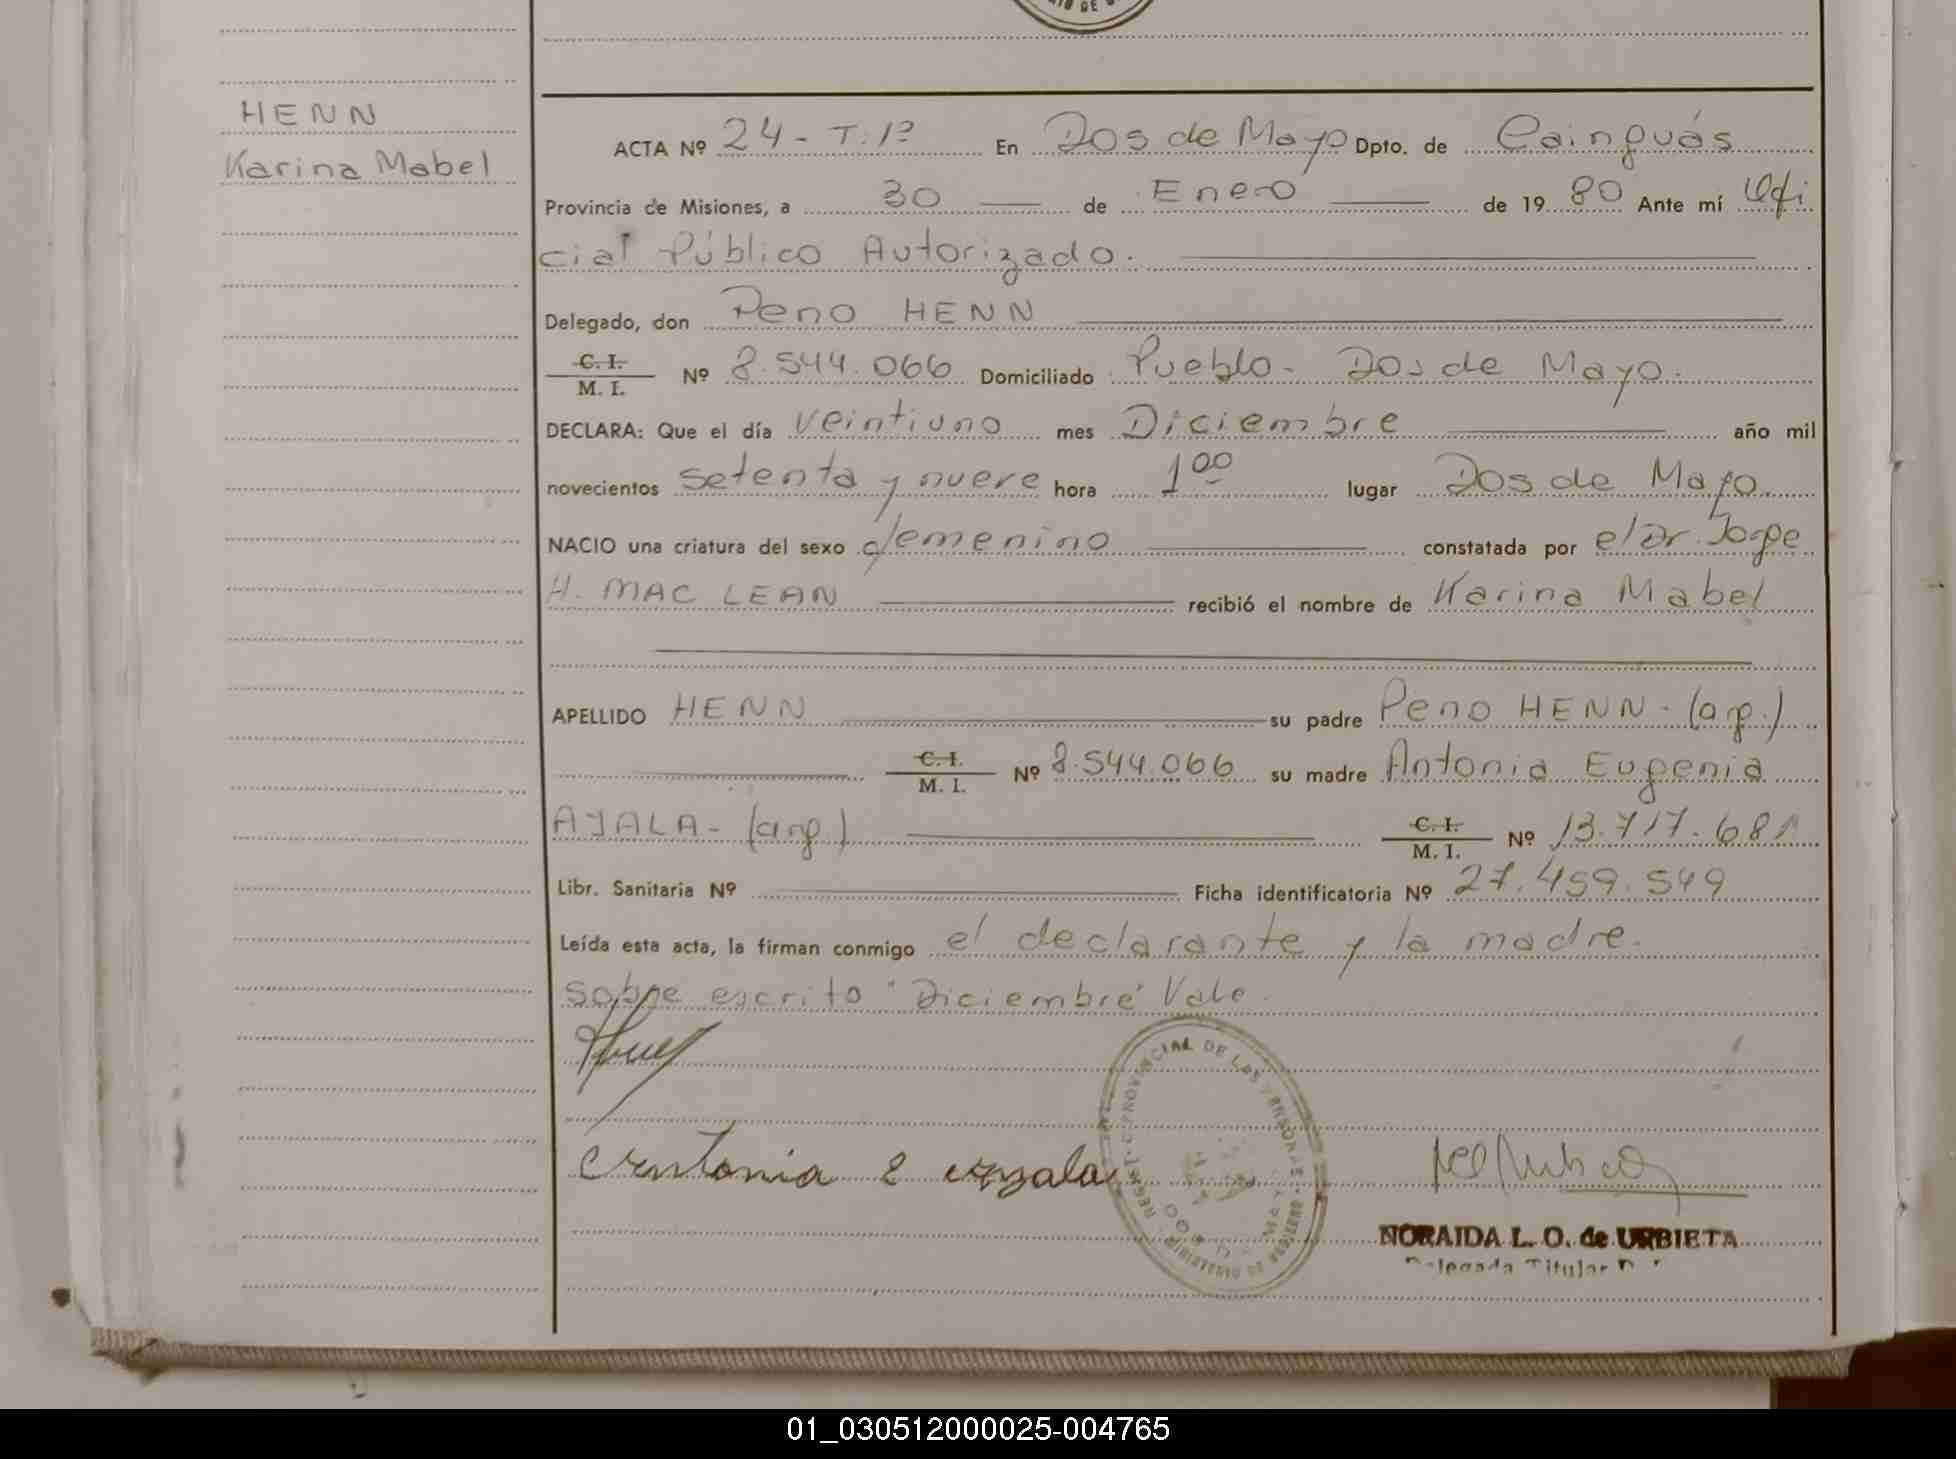 HENN
Karina Mabel
ACTA Nº 24 - T. 1º En Dos de Mayo Dpto. de Cainguás
Provincia de Misiones, a 30 de Enero de 1980 Ante mí Ofi
cial Público Autorizado.
Delegado, don Reno HENN
C. I. / M. I. Nº 8.544.066 Domiciliado Pueblo - Dos de Mayo.
DECLARA: Que el día veintiuno mes Diciembre año mil
novecientos setenta y nueve hora 1⁰⁰ lugar Dos de Mayo.
NACIO una criatura del sexo femenino constatada por el Dr. Jorge
H. MAC LEAN recibió el nombre de Karina Mabel
APELLIDO HENN su padre Reno HENN - (arg.)
C. I. / M. I. Nº 8.544.066 su madre Antonia Eugenia
AYALA - (arg.) C. I. / M. I. Nº 13.717.681
Libr. Sanitaria Nº Ficha identificatoria Nº 27.459.549
Leída esta acta, la firman conmigo el declarante y la madre.
Sobre escrito "Diciembre" Vale.
Antonia E Ayala
REGIST. PROVINCIAL DE LAS PERSONAS
MINISTERIO DE GOBIERNO
NORAIDA L. O. de URBIETA
Delegada Titular
01_030512000025-004765